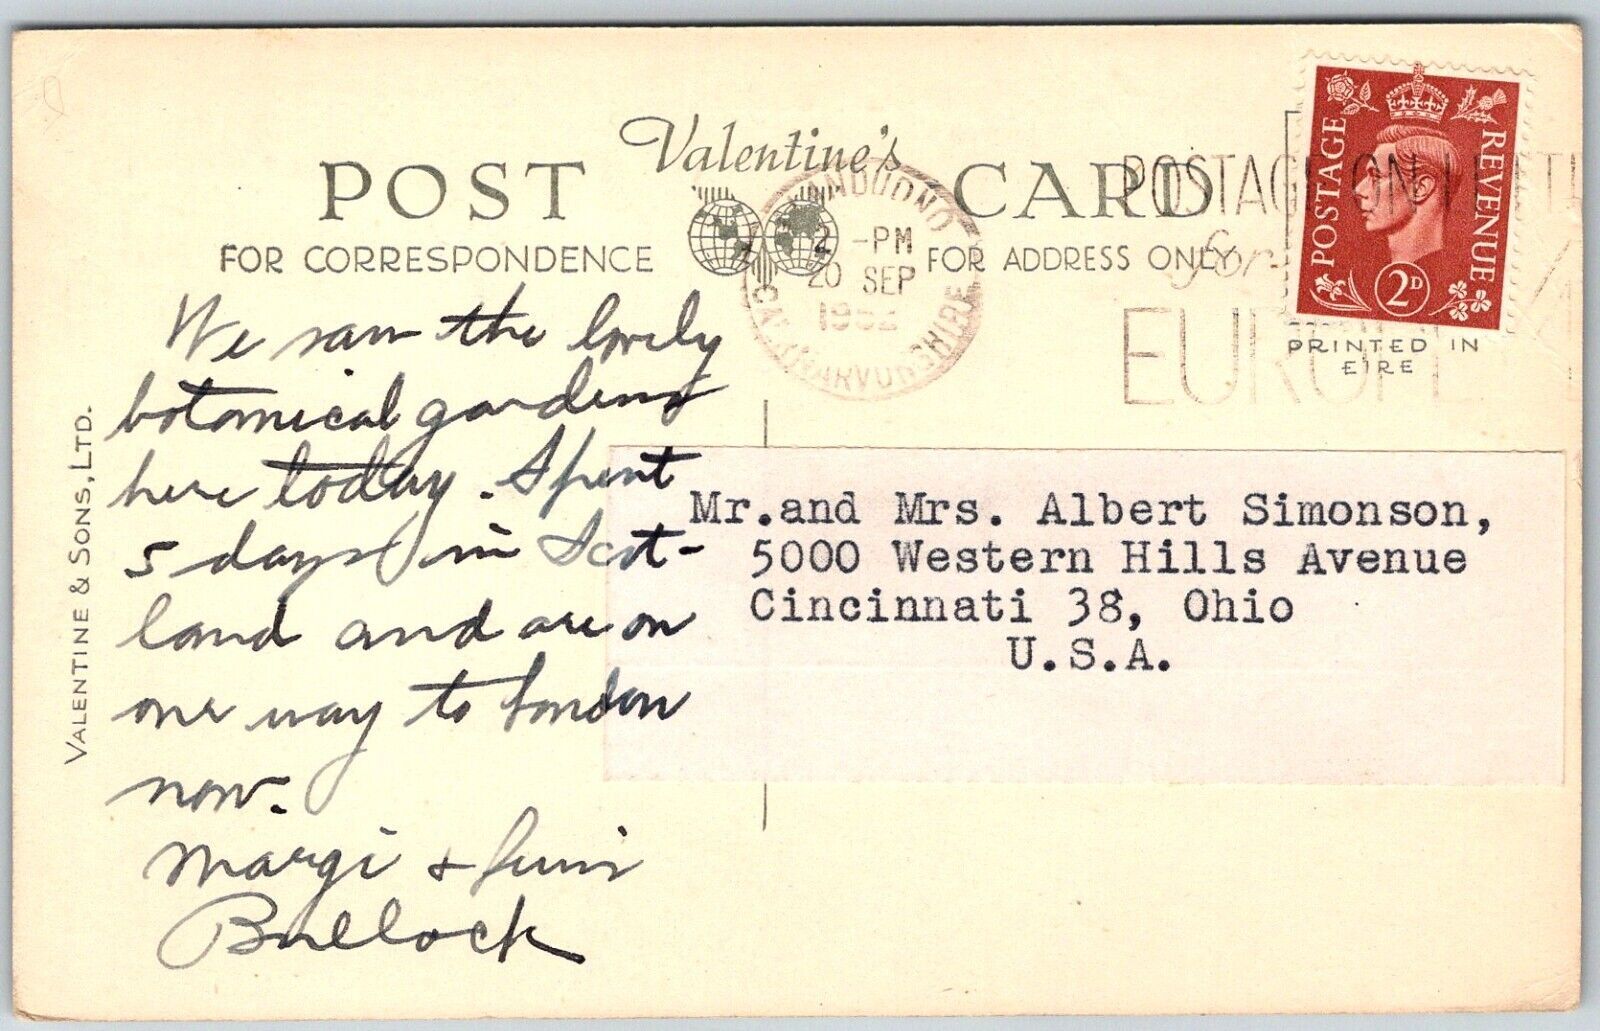 Valentine's
POST CARD
FOR CORRESPONDENCE
FOR ADDRESS ONLY
2 -PM
20 SEP
1952
CAERNARVONSHIRE
POSTAGE ON
for
EUROPE
POSTAGE
REVENUE
2D
PRINTED IN
EIRE
VALENTINE & SONS, LTD.
We saw the lovely
botanical gardens
here today. Spent
5 days in Scot-
land and are on
our way to London
now.
Margi &
Bullock
Mr. and Mrs. Albert Simonson,
5000 Western Hills Avenue
Cincinnati 38, Ohio
U.S.A.